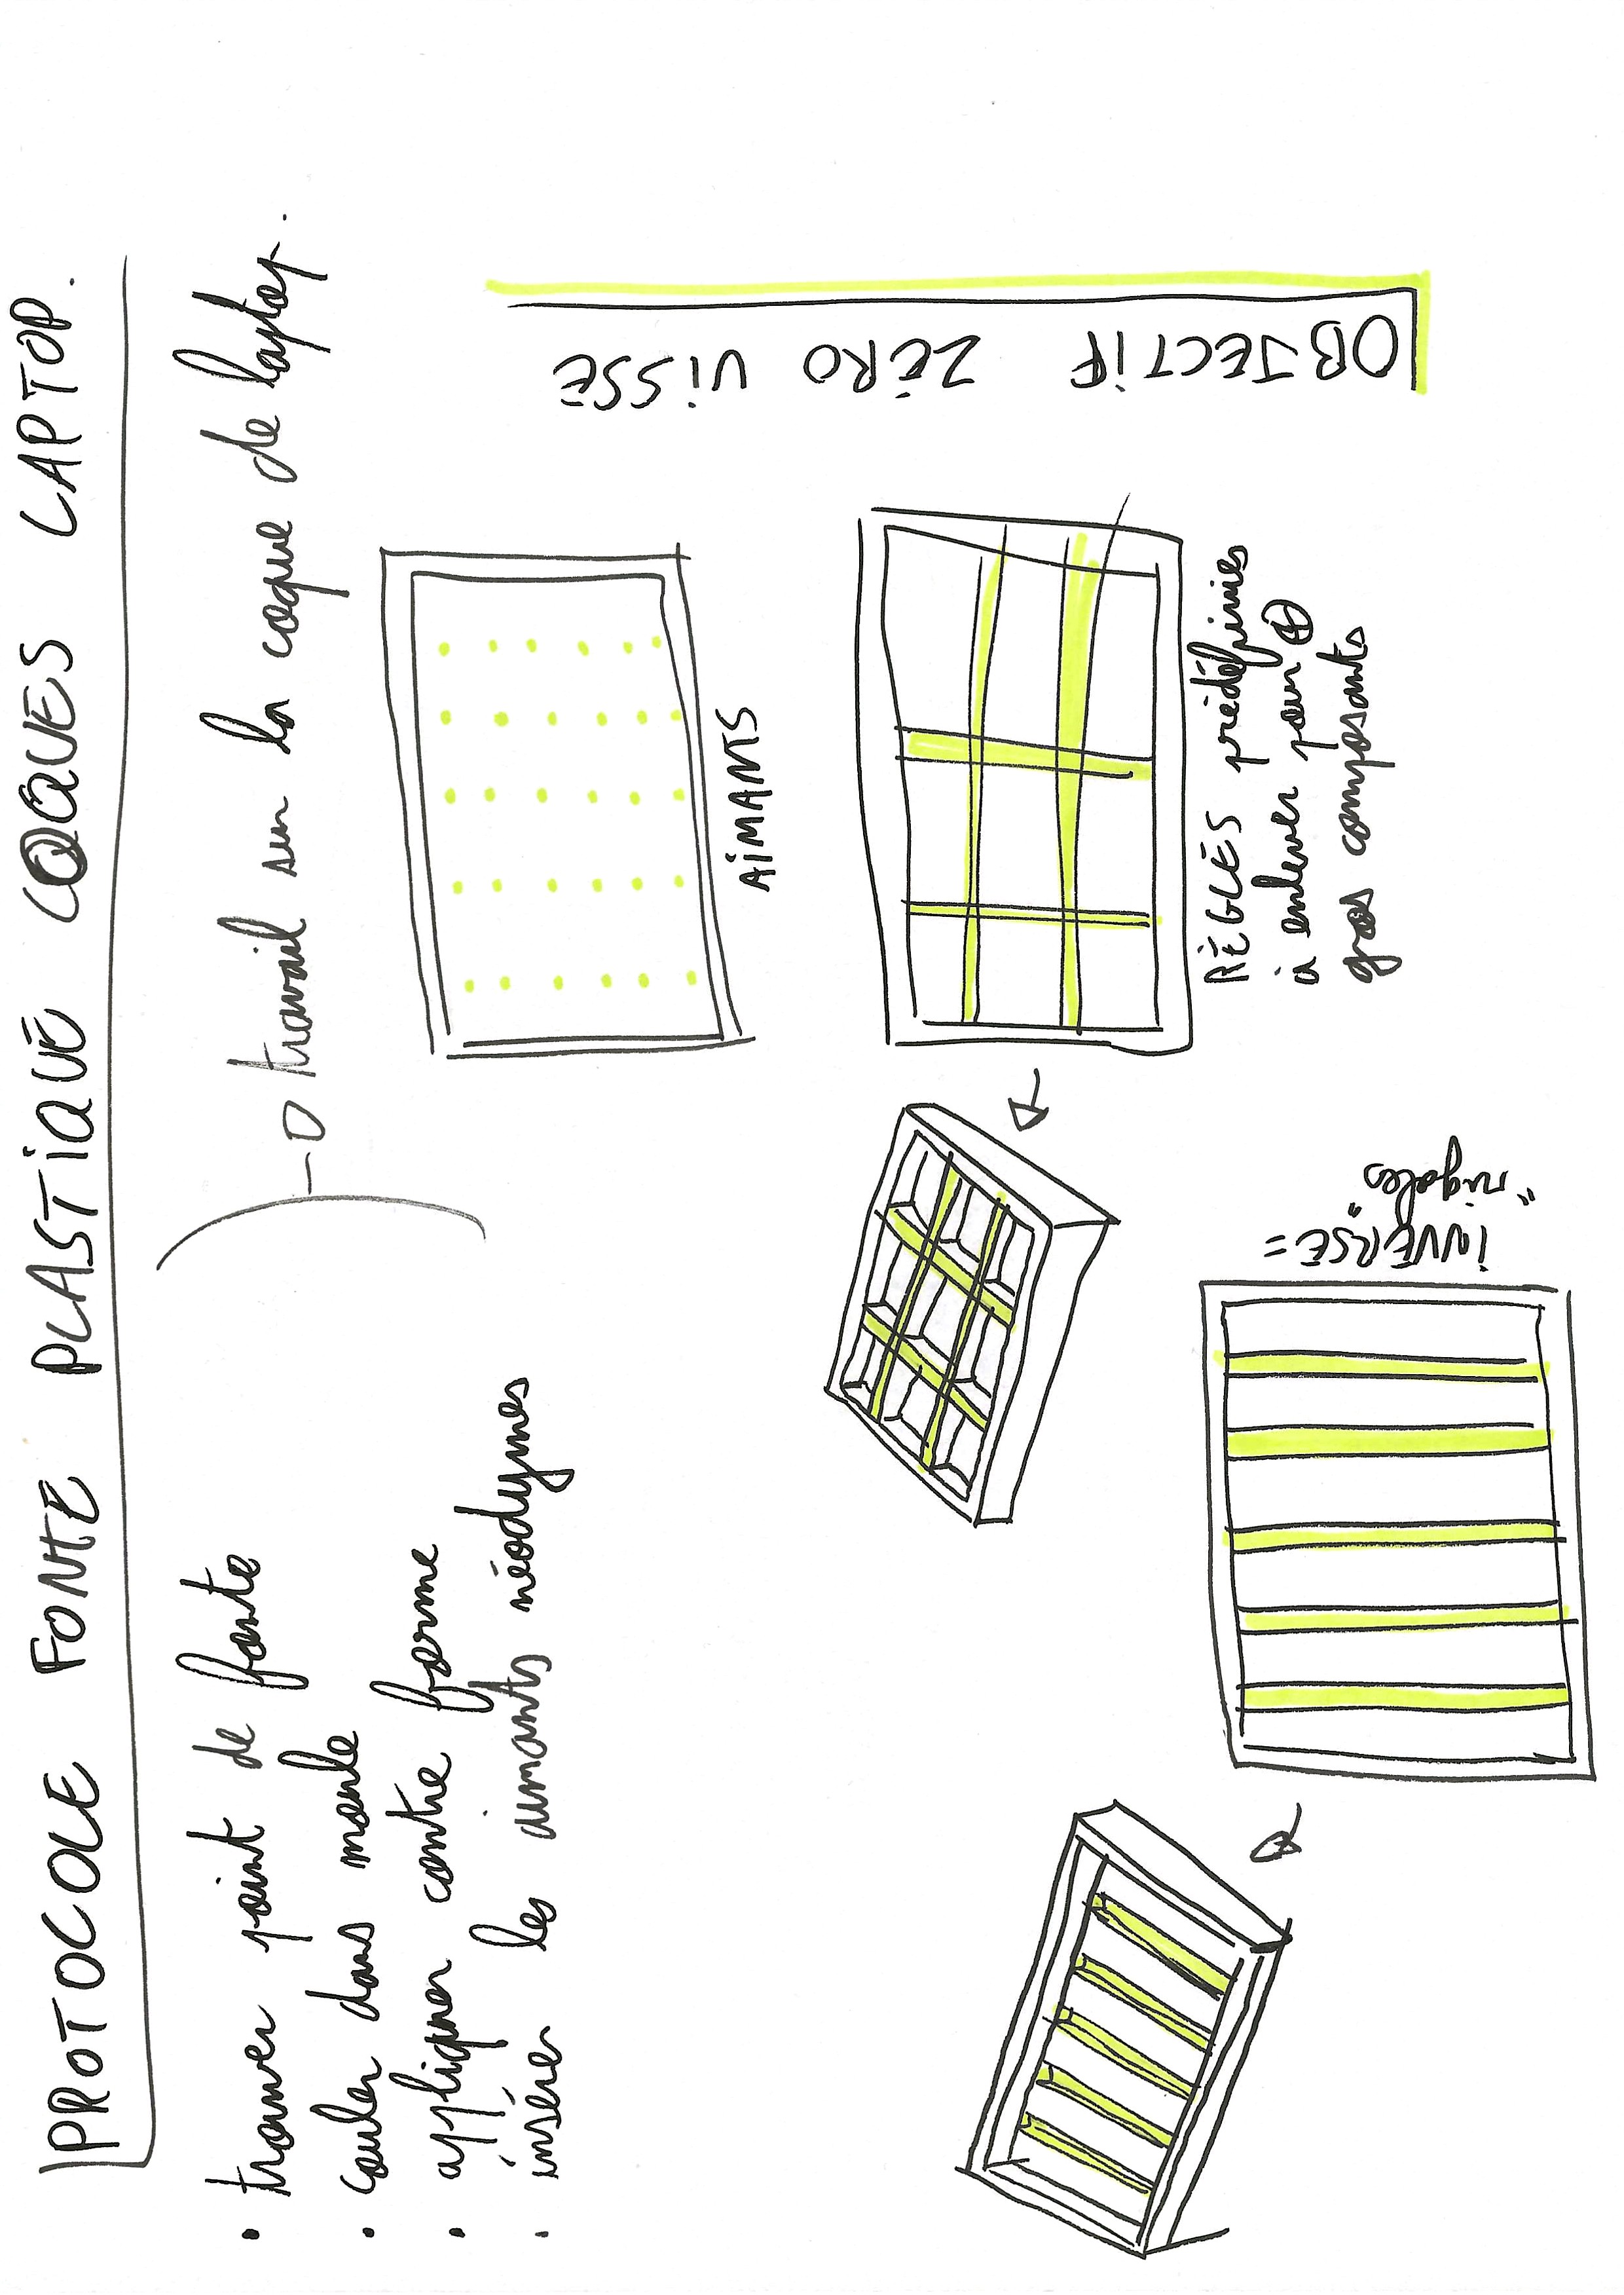 PROTOCOLE FONTE PLASTIQUE COQUES LAPTOP.
• trouver point de fonte
• couler dans moule
• appliquer contre forme
• insérer les aimants néodymes
→ travail sur la coque de laptop.
AIMANTS
OBJECTIF ZÉRO VISSE
RÈGLES prédéfinies
à enlever pour ⊕
gros composants
INVERSE =
"rigoles"